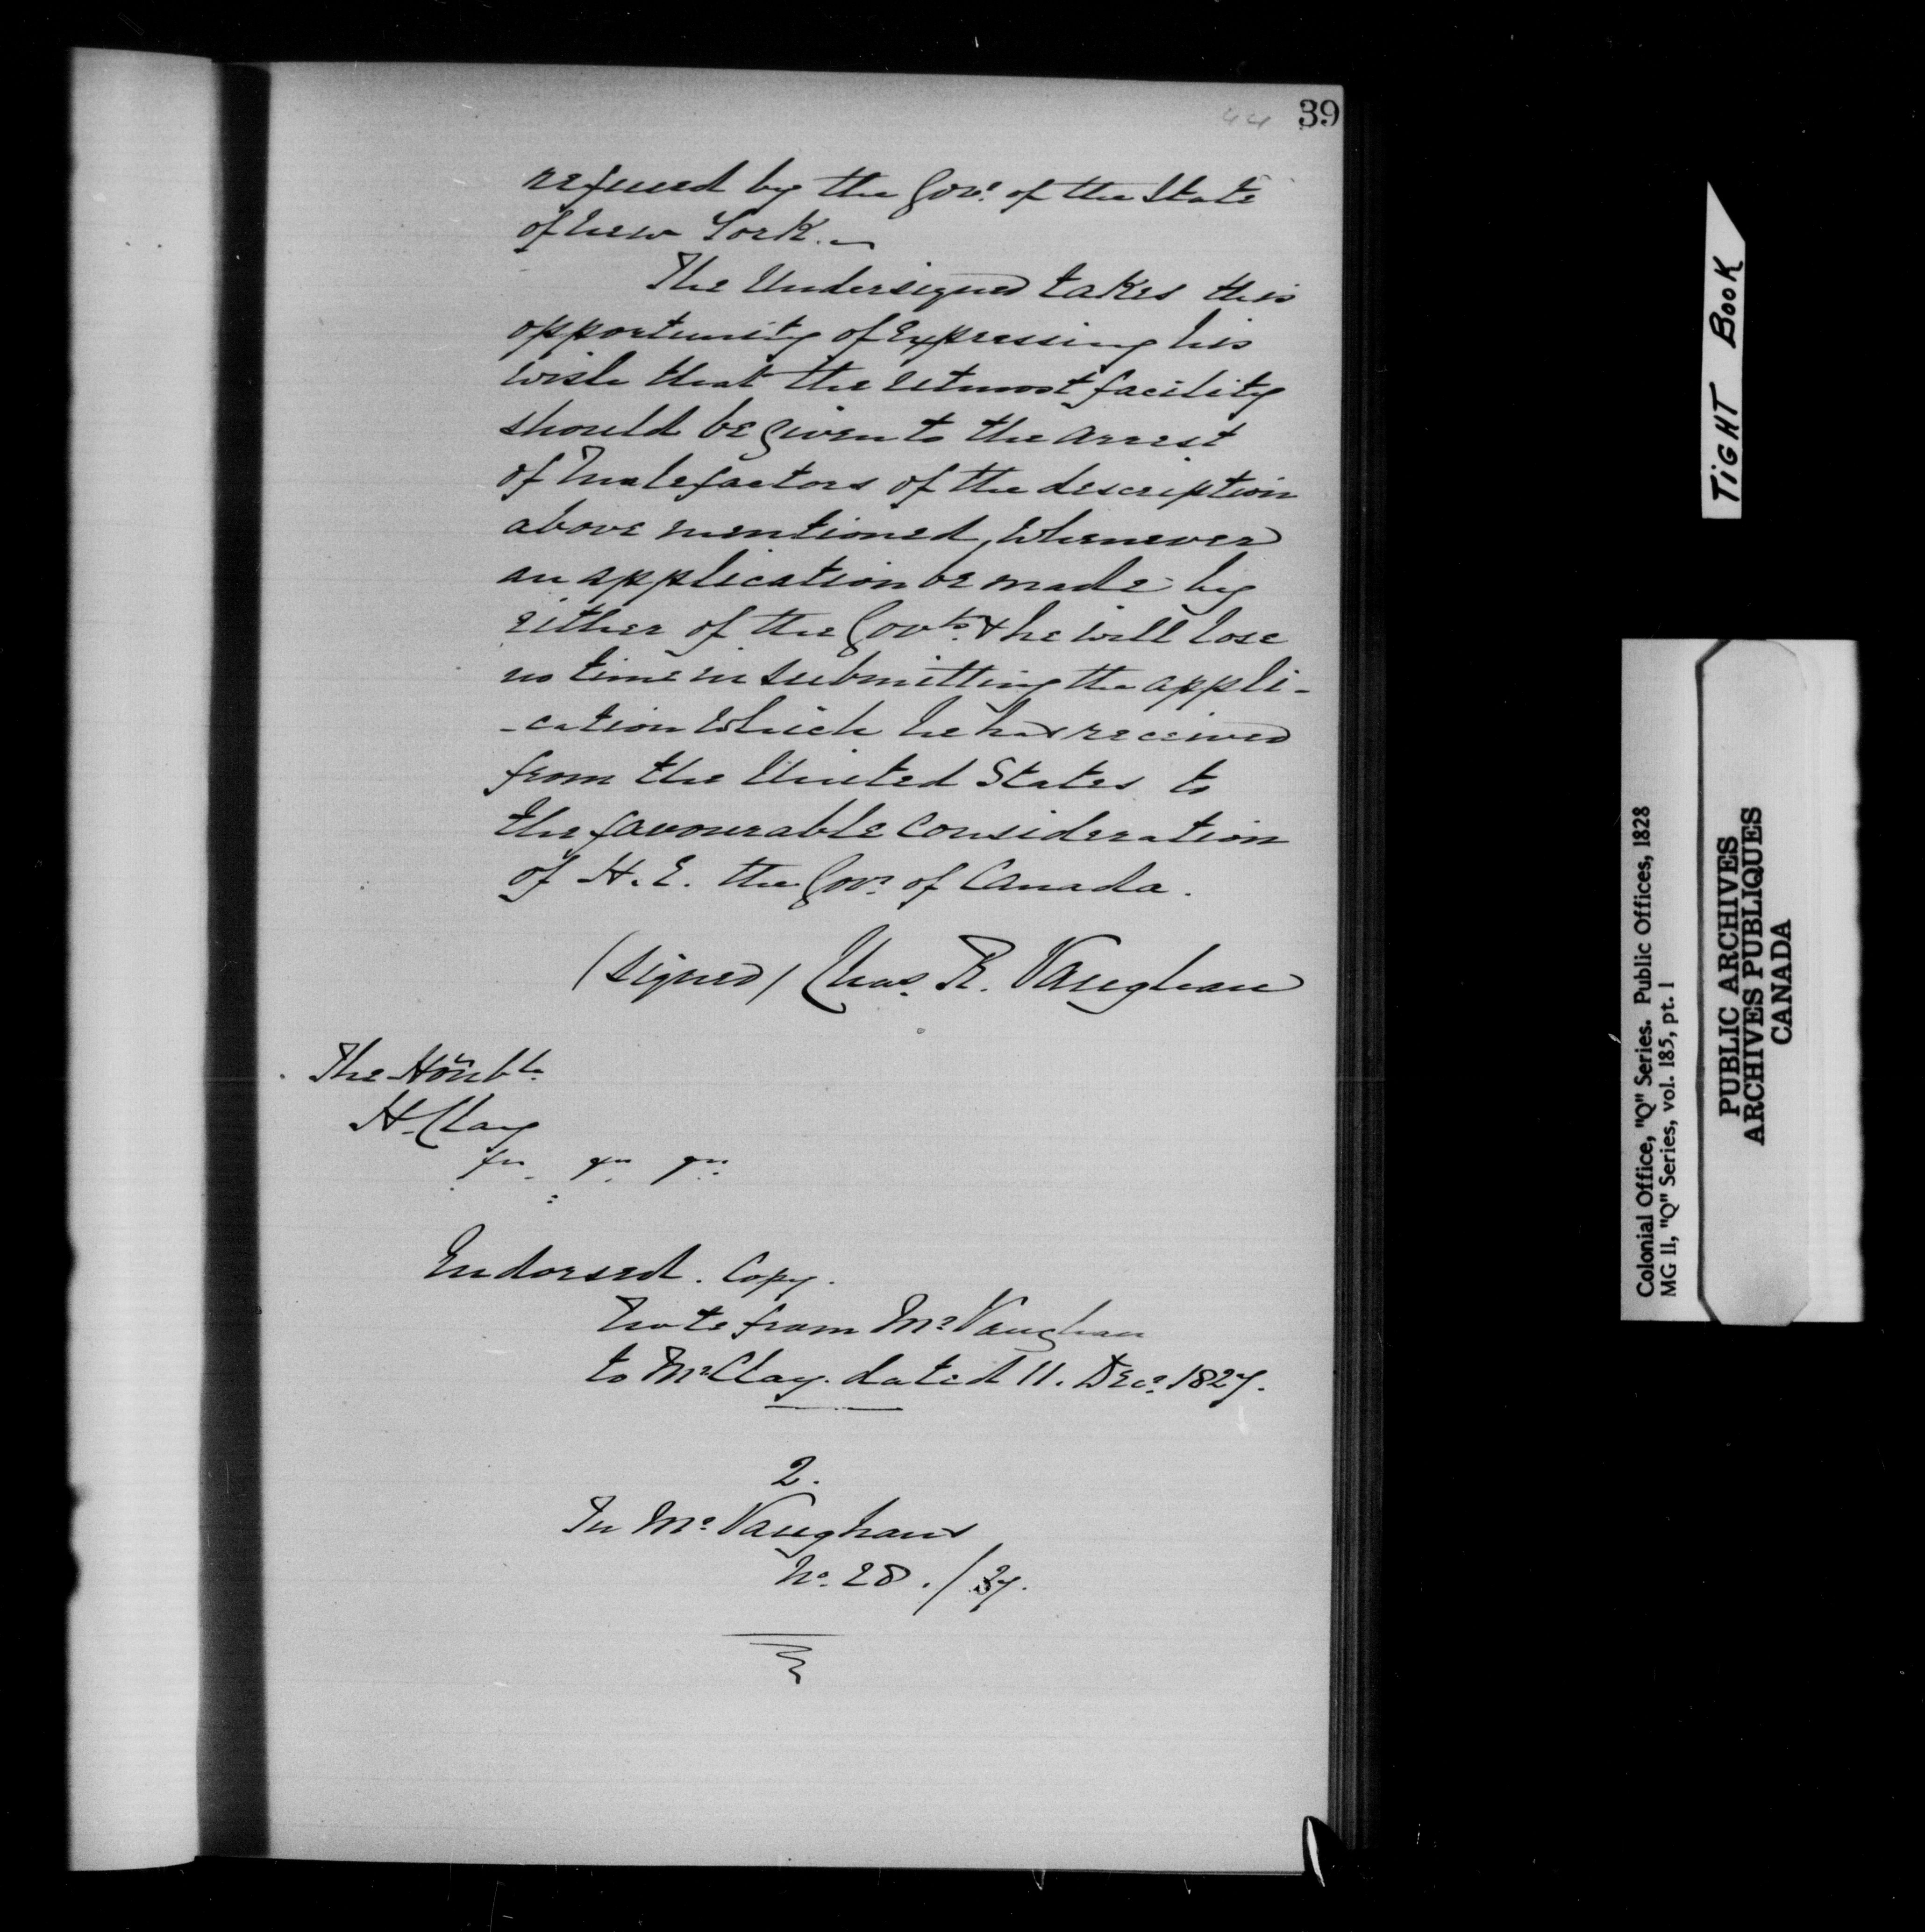 44 39
refused by the Govr. of the State
of New York.
The Undersigned takes this
opportunity of expressing his
wish that the utmost facility
should be given to the arrest
of Malefactors of the description
above mentioned, whenever
an application be made by
either of the Govts. & he will lose
no time in submitting the appli-
-cation which he has received
from the United States to
the favourable consideration
of H. E. the Govr. of Canada.
(signed) Chas. R. Vaughan
The Honble.
H. Clay
Endorsed. Copy.
Note from Mr. Vaughan
to Mr. Clay. dated 11. Decr. 1827.
2.
In Mr. Vaughans
No. 28. / 27.
TiGHT BOOK
Colonial Office, "Q" Series. Public Offices, 1828
MG 11, "Q" Series, vol. 185, pt. 1
PUBLIC ARCHIVES
ARCHIVES PUBLIQUES
CANADA